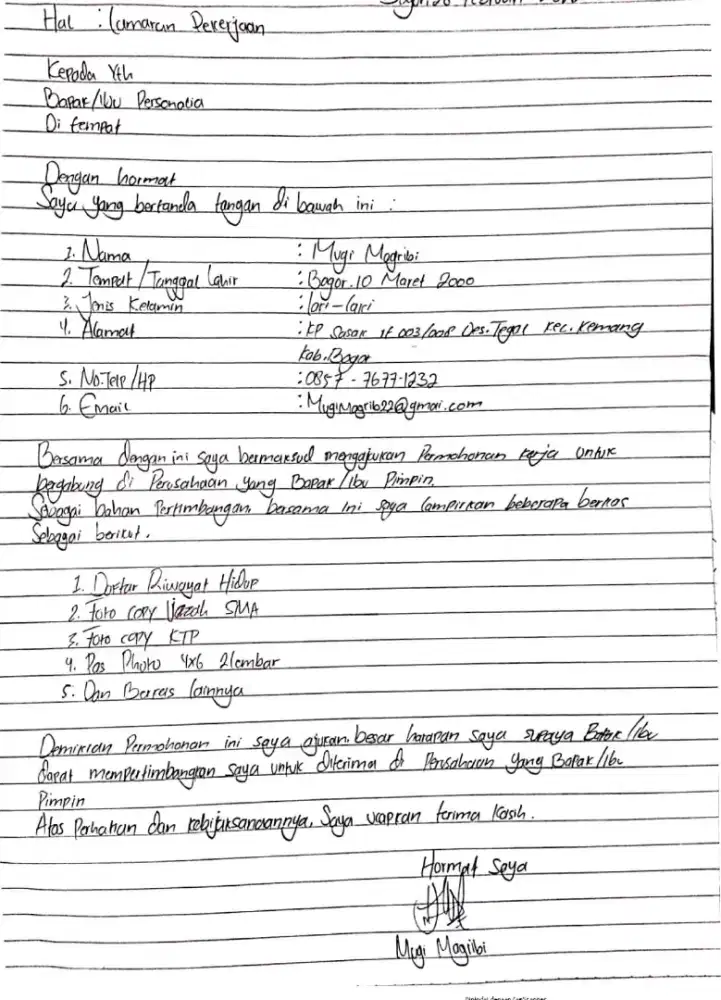 Hal : Lamaran Pekerjaan
Kepada Yth
Bapak/Ibu Personalia
Di tempat
Dengan hormat
Saya yang bertanda tangan di bawah ini :
1. Nama : Mugi Magribi
2. Tempat / Tanggal Lahir : Bogor. 10 Maret 2000
3. Jenis Kelamin : laki-laki
4. Alamat : KP Sasak 003/008 Des. Tegal Kec. Kemang
Kab. Bogor
5. No. Telp / HP : 0857 - 7677-1232
6. Email : MugiMagrib22@gmai.com
Bersama dengan ini saya bermaksud mengajukan Permohonan kerja untuk
bergabung di Perusahaan yang Bapak/Ibu Pimpin.
Sebagai bahan Pertimbangan, basama ini saya lampirkan beberapa berkas
Sebagai berikut.
1. Daftar Riwayat Hidup
2. Foto copy Ijazah SMA
3. Foto copy KTP
4. Pas Photo 4x6 2 lembar
5. Dan Berkas lainnya
Demikian Permohonan ini saya ajukan. besar harapan saya supaya Bapak/Ibu
dapat mempertimbangkan saya untuk diterima di Perusahaan yang Bapak/Ibu
Pimpin
Atas Perhatian dan kebijaksanaannya, Saya ucapkan terima kasih.
Hormat Saya
Mugi Magiibi